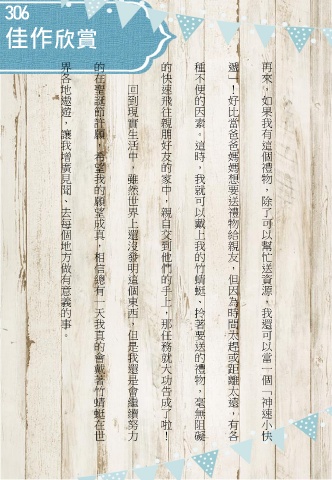 306
佳作欣賞
再來，如果我有這個禮物，除了可以幫忙送資源，我還可以當一個「神速小快
遞」！好比當爸爸媽媽想要送禮物給親友，但因為時間太趕或距離太遠，有各
種不便的因素。這時，我就可以戴上我的竹蜻蜓、拎著要送的禮物，毫無阻礙
的快速飛往親朋好友的家中，親自交到他們的手上，那任務就大功告成了啦！
回到現實生活中，雖然世界上還沒發明這個東西，但是我還是會繼續努力
的在聖誕節許願，希望我的願望成真，相信總有一天我真的會戴著竹蜻蜓在世
界各地遨遊，讓我增廣見聞、去每個地方做有意義的事。